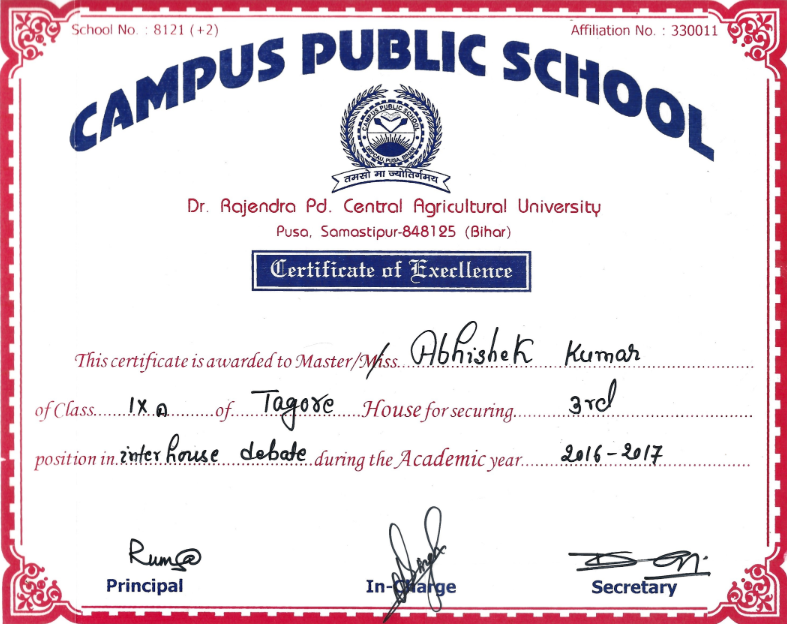 School No. : 8121 (+2)
Affiliation No. : 330011
CAMPUS PUBLIC SCHOOL
CAMPUS PUBLIC SCHOOL
PUSA, BIHAR
तमसो मा ज्योतिर्गमय
Dr. Rajendra Pd. Central Agricultural University
Pusa, Samastipur-848125 (Bihar)
Certificate of Execllence
This certificate is awarded to Master/Miss Abhishek Kumar
of Class IX A of Tagore House for securing 3rd
position in inter house debate during the Academic year 2016-2017
Principal
In-Charge
Secretary